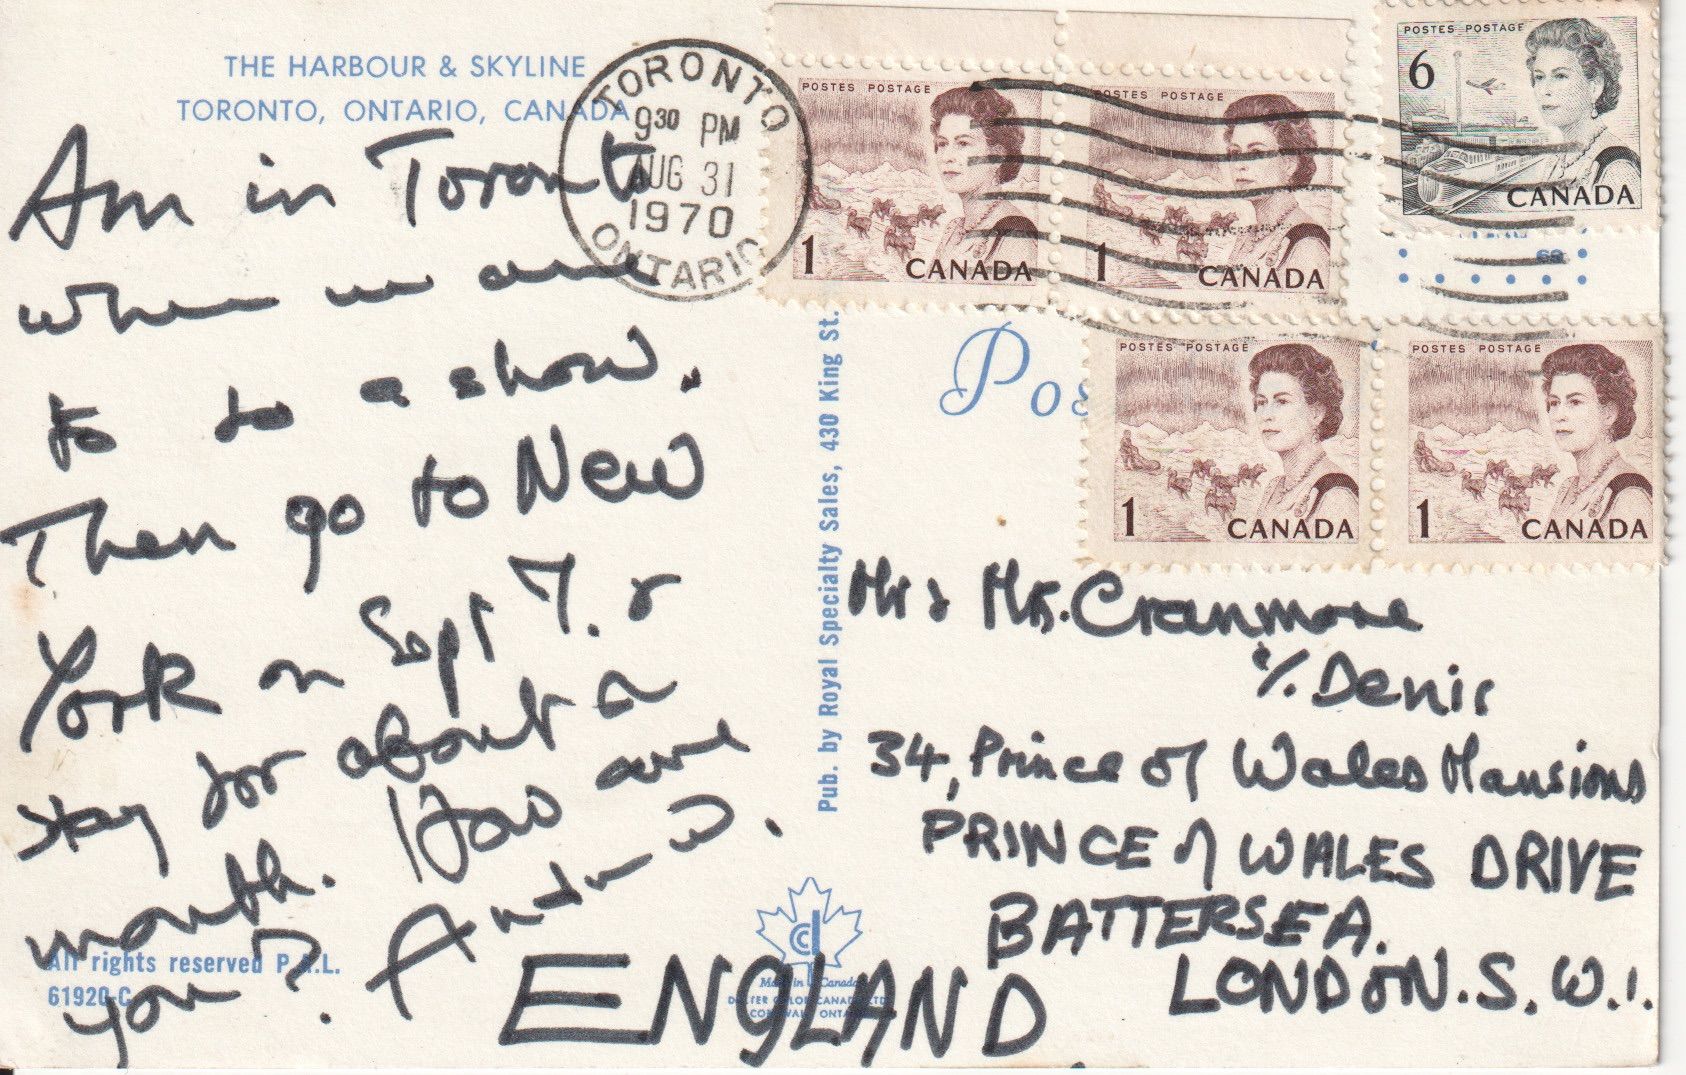 THE HARBOUR & SKYLINE
TORONTO, ONTARIO, CANADA
Am in Toronto
where we are
to do a show.
Then go to New
York on Sept 7. &
stay for about a
month. How are
you? Andrew.
All rights reserved P.A.L.
61920-C
TORONTO
9 30 PM
AUG 31
1970
ONTARIO
POSTES POSTAGE
1 CANADA
POSTES POSTAGE
1 CANADA
POSTES POSTAGE
6
CANADA
POSTES POSTAGE
1 CANADA
POSTES POSTAGE
1 CANADA
Pos
Pub. by Royal Specialty Sales, 430 King St.
Mr & Mrs. Cranmore
c/. Denis
34, Prince of Wales Mansions
PRINCE of WALES DRIVE
BATTERSEA.
LONDON. S. W. 1.
ENGLAND.
Made in Canada